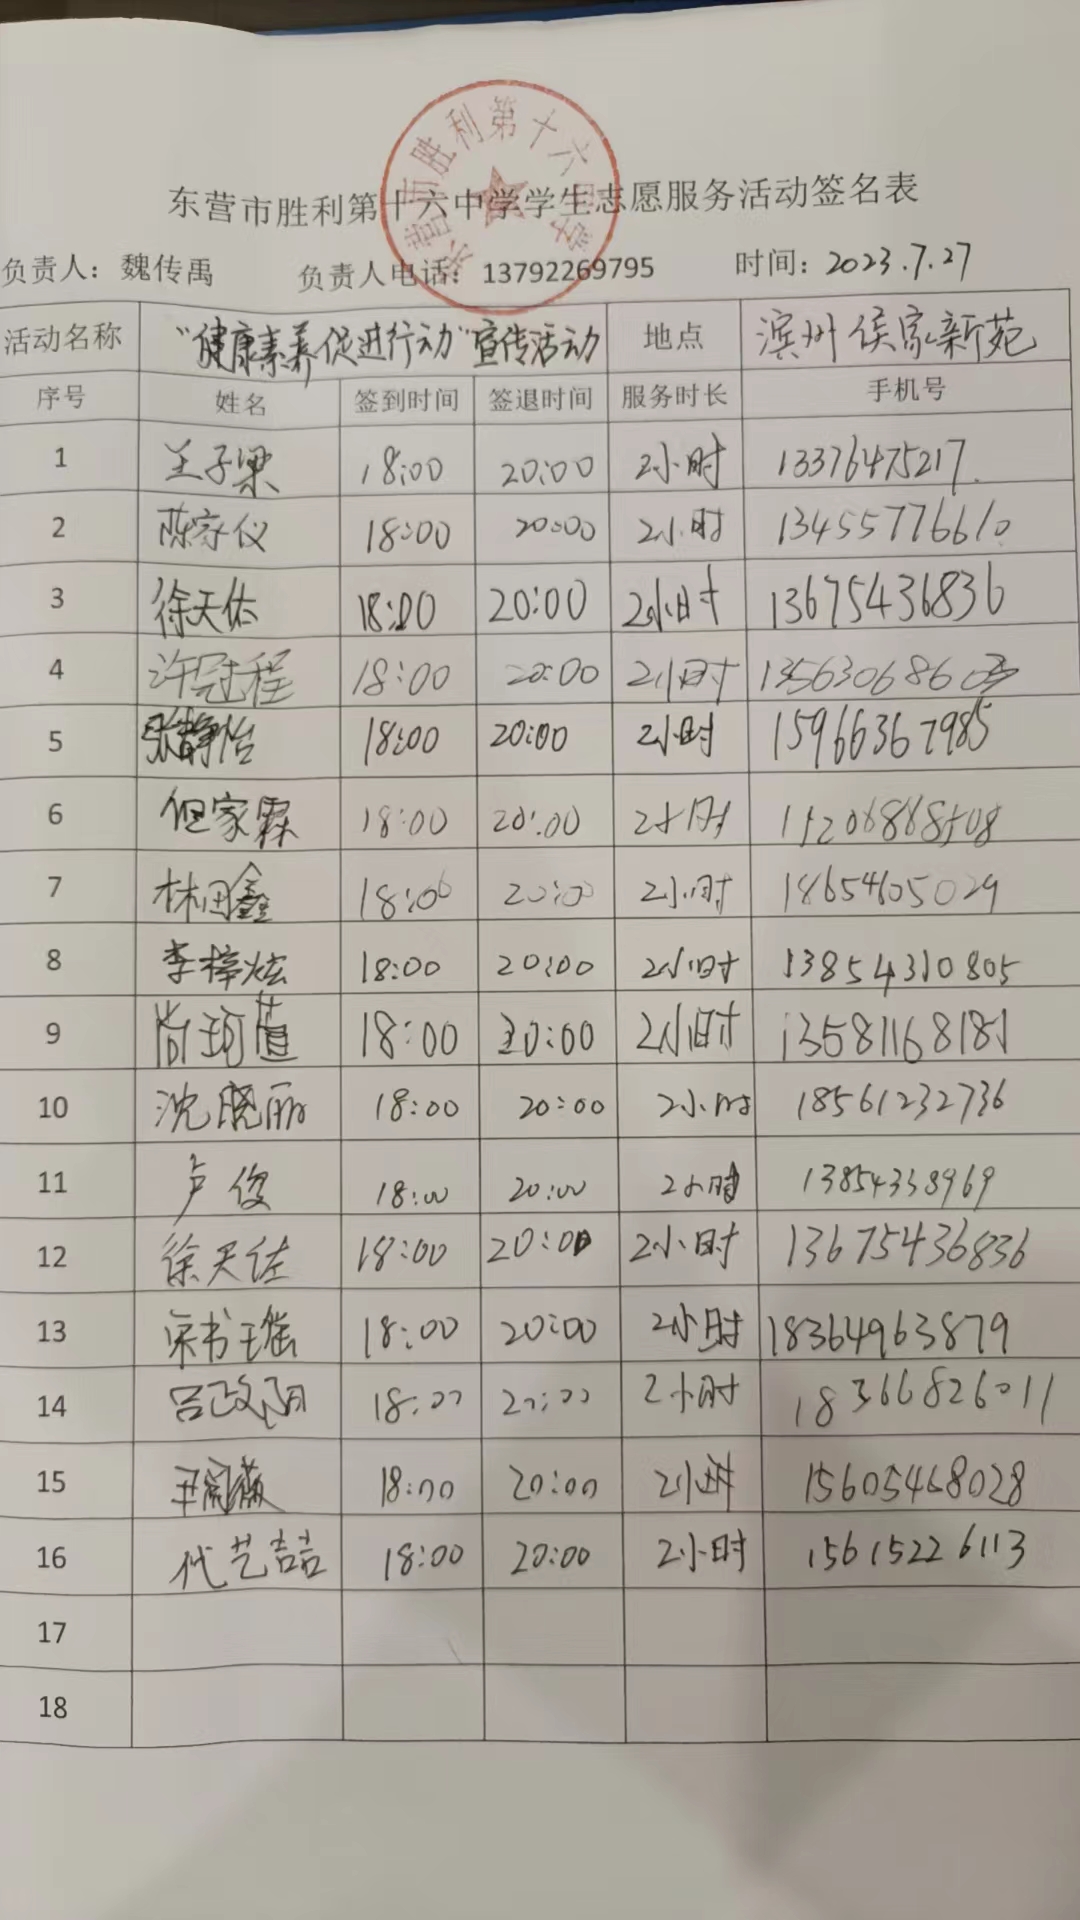 东营市胜利第十六中学
东营市胜利第十六中学学生志愿服务活动签名表
负责人：魏传禹 负责人电话：13792269795 时间：2023.7.27
活动名称 “健康素养促进行动”宣传活动 地点 滨州侯家新苑
序号 姓名 签到时间 签退时间 服务时长 手机号
1 王子梁 18:00 20:00 2小时 13376475217
2 陈家仪 18:00 20:00 2小时 13455776610
3 徐天佑 18:00 20:00 2小时 13675436836
4 许冠程 18:00 20:00 2小时
5 张静怡 18:00 20:00 2小时 15966367985
6 但家霖 18:00 20:00 2小时 15206868508
7 林田鑫 18:00 20:00 2小时 18654605029
8 李梓炫 18:00 20:00 2小时 13854310805
9 尚珂萱 18:00 20:00 2小时 13581168181
10 沈晓丽 18:00 20:00 2小时 18561232736
11 卢俊 18:00 20:00 2小时 13854338969
12 徐天佐 18:00 20:00 2小时 13675436836
13 宋书瑶 18:00 20:00 2小时 18364963879
14 吕政阳 18:00 20:00 2小时 18366826011
15 18:00 20:00 2小时 15605468028
16 代艺喆 18:00 20:00 2小时 15615226113
17
18